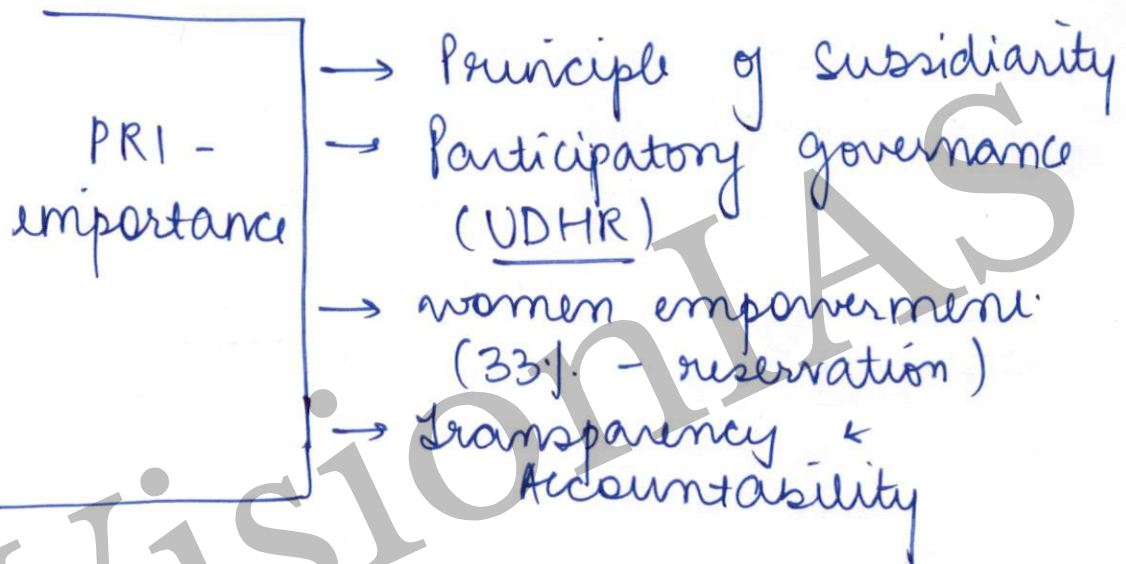 PRI -
importance
→ Principle of subsidiarity
→ Participatory governance
(UDHR)
→ women empowerment.
(33% - reservation)
→ Transparency &
Accountability
VisionIAS